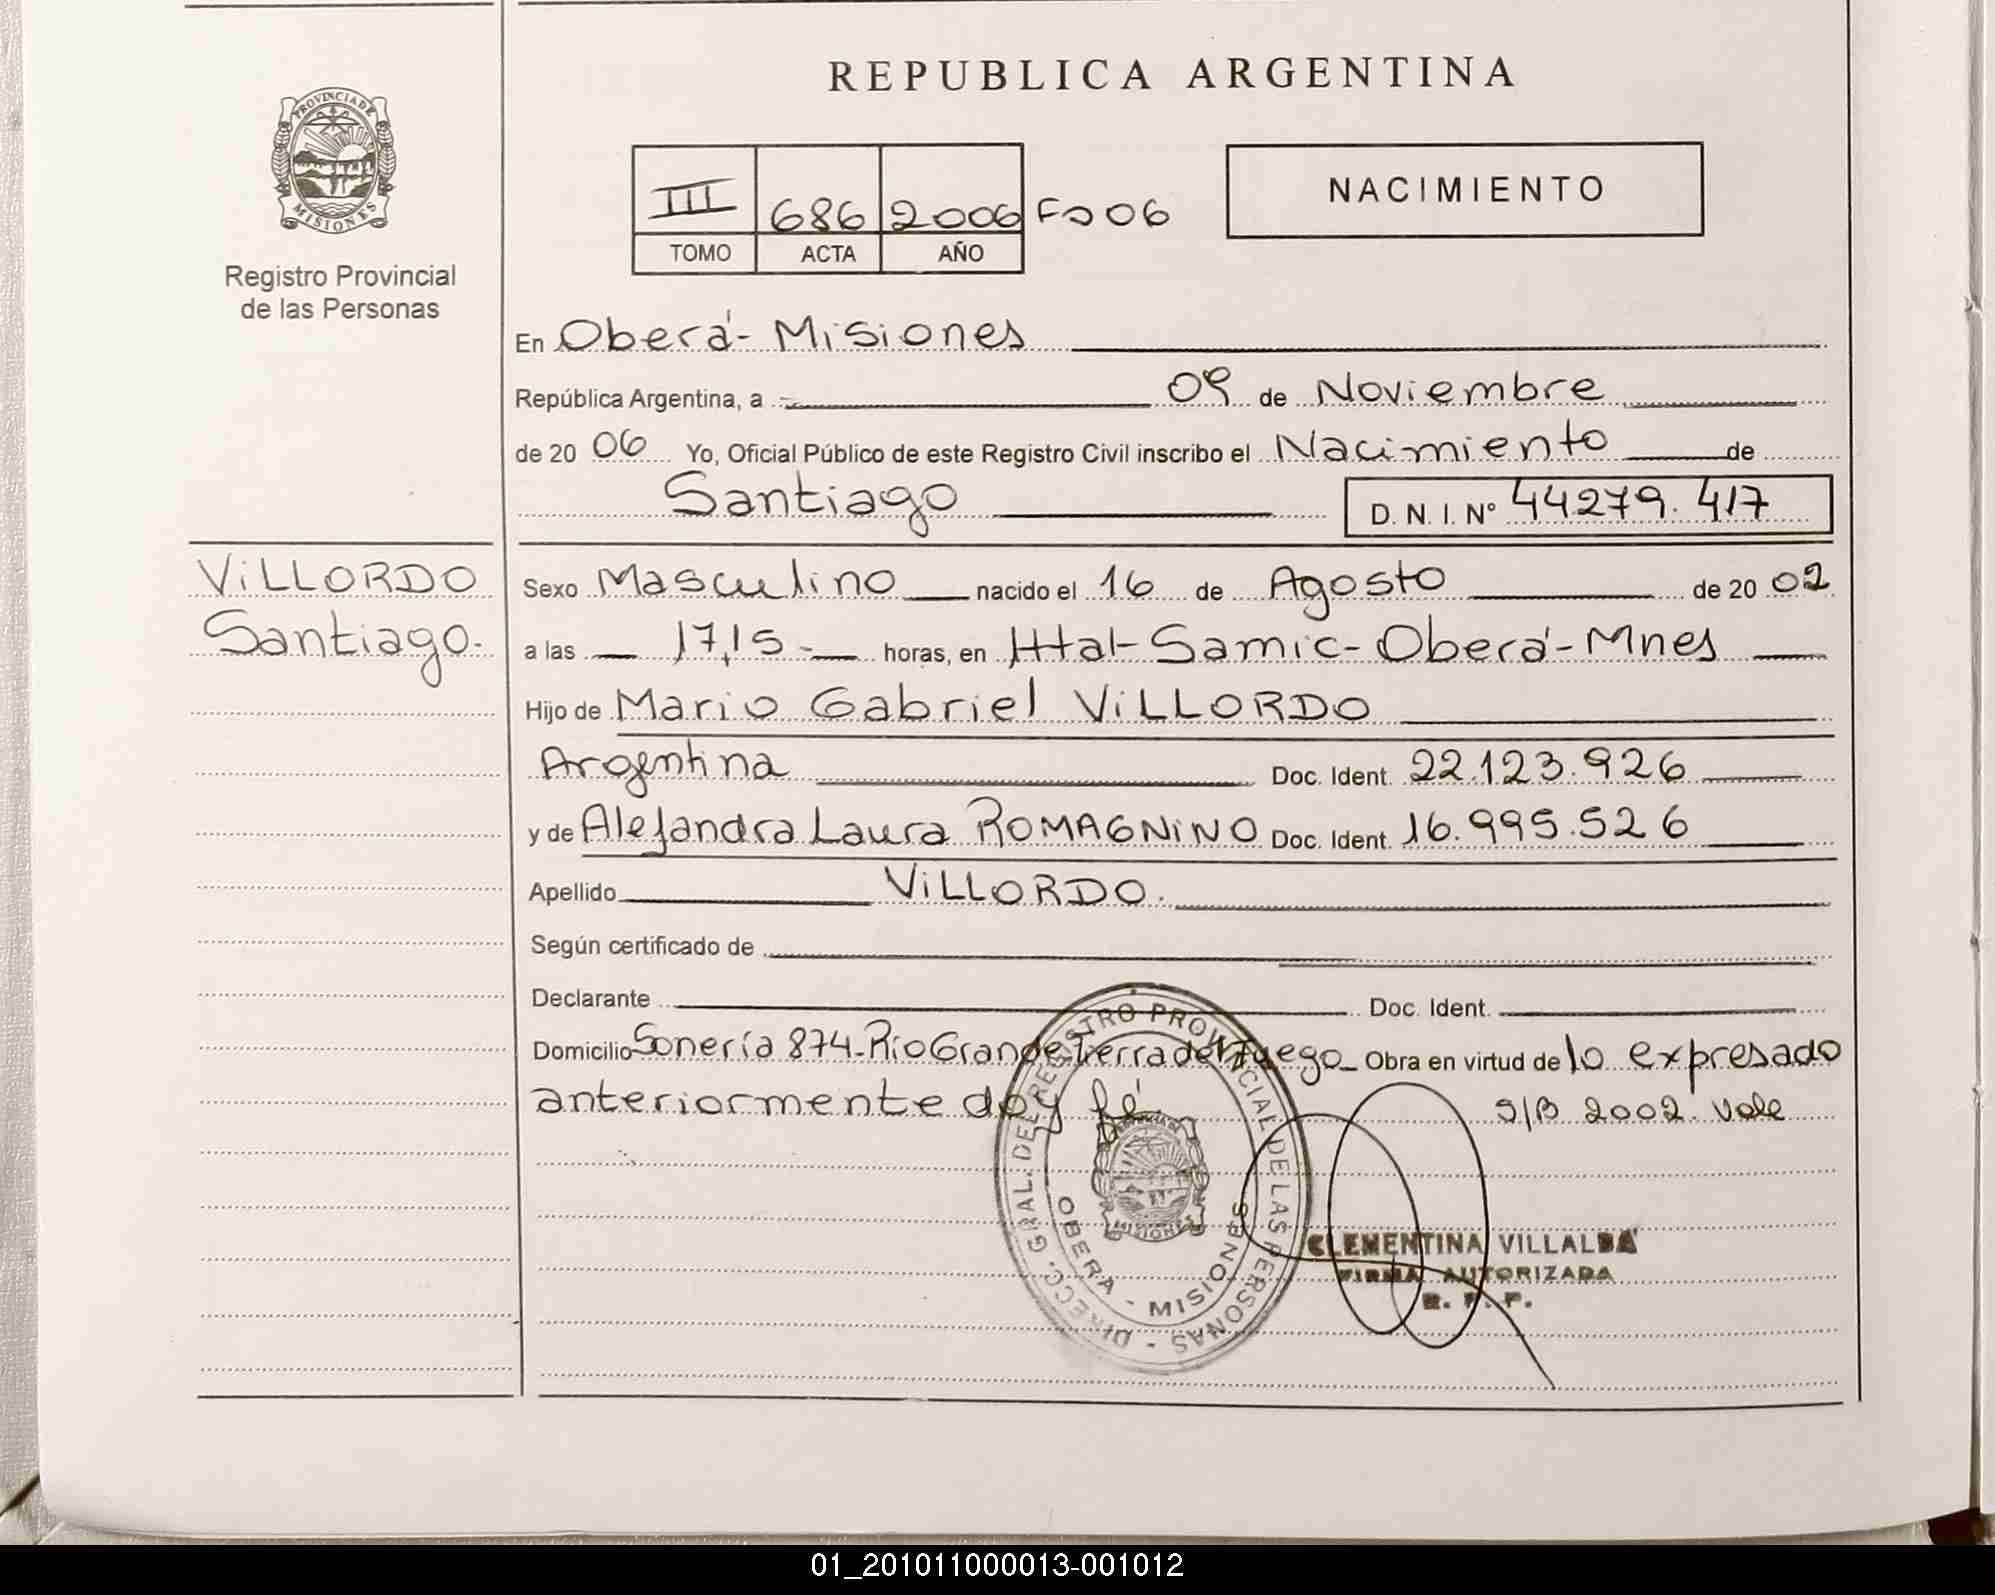 REPUBLICA ARGENTINA
PROVINCIA DE MISIONES
Registro Provincial
de las Personas
III 686 2006 Fo 06
TOMO ACTA AÑO
NACIMIENTO
En Oberá - Misiones
República Argentina, a 09 de Noviembre
de 20 06 Yo, Oficial Público de este Registro Civil inscribo el Nacimiento de
Santiago D. N. I. N° 44279.417
VILLORDO
Santiago.-
Sexo Masculino nacido el 16 de Agosto de 20 02
a las 17,15 - horas, en Htal-Samic-Oberá-Mnes
Hijo de Mario Gabriel VILLORDO
Argentina Doc. Ident. 22.123.926
y de Alejandra Laura ROMAGNINO Doc. Ident. 16.995.526
Apellido VILLORDO.
Según certificado de
Declarante Doc. Ident.
Domicilio Sonería 874-Rio Grande-Tierra del Fuego Obra en virtud de lo expresado
anteriormente doy fé. S/B 2002. Vale
DIRECC. GRAL. DEL REGISTRO PROVINCIAL DE LAS PERSONAS -
OBERA - MISIONES
MISIONES
CLEMENTINA VILLALBA
FIRMA AUTORIZADA
R. P. P.
01_201011000013-001012